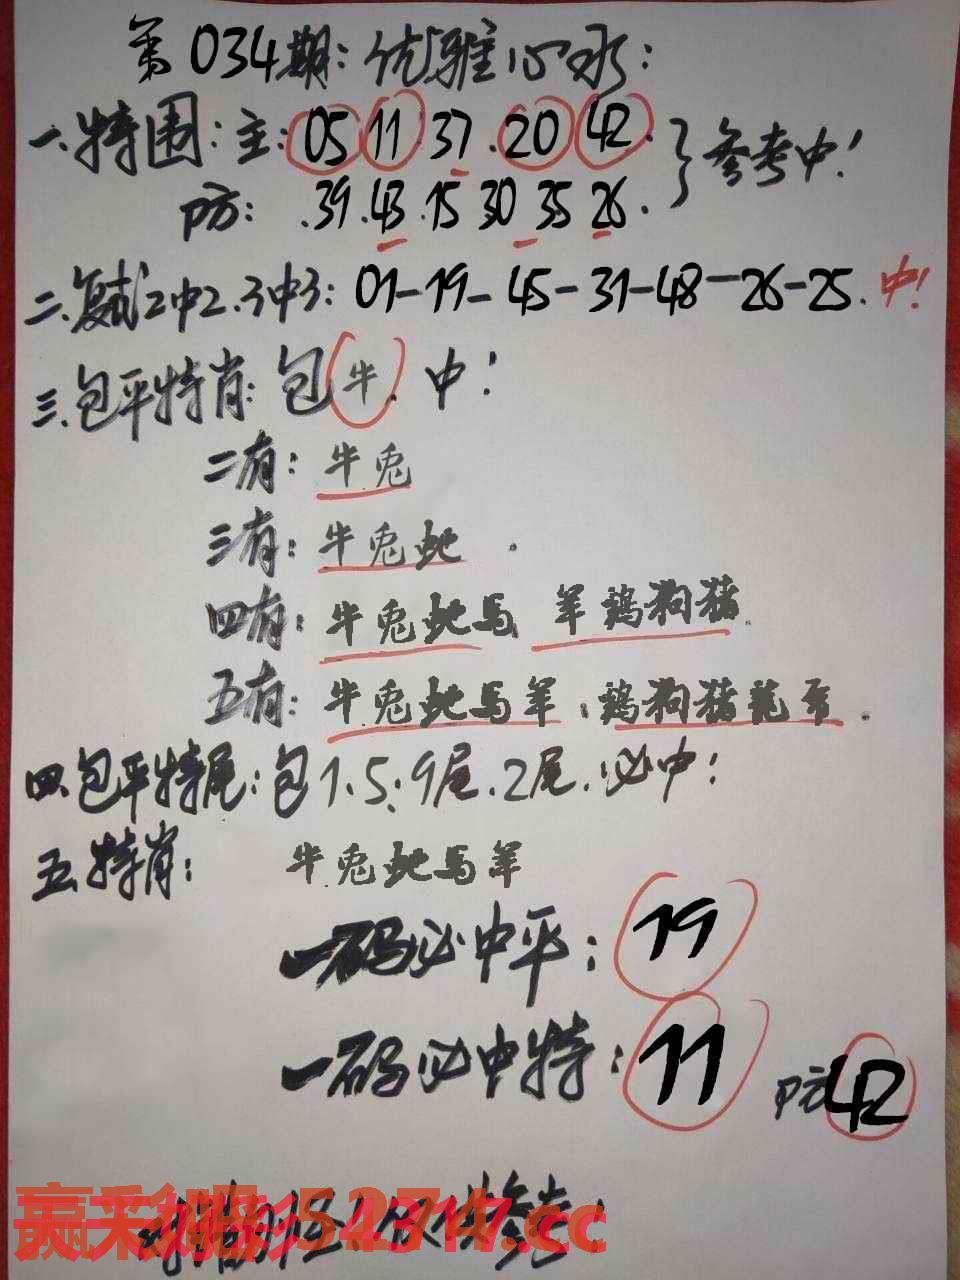 第034期：优雅心水：
一.特围：主：05 11 37.20 42.
防：.39.43.15 30 35 26.
}参考中！
二.复式2中2.3中3：01-19-45-31-48-26-25.中！
三.包平特肖：包牛.中！
二有：牛兔
三有：牛兔蛇.
四有：牛兔蛇马、羊鸡狗猪.
五有：牛兔蛇马羊、鸡狗猪龙
四.包平特尾：包1.5.9尾.2尾.必中！
五.特肖：牛兔蛇马羊
一码必中平：19
一码必中特：11 防42